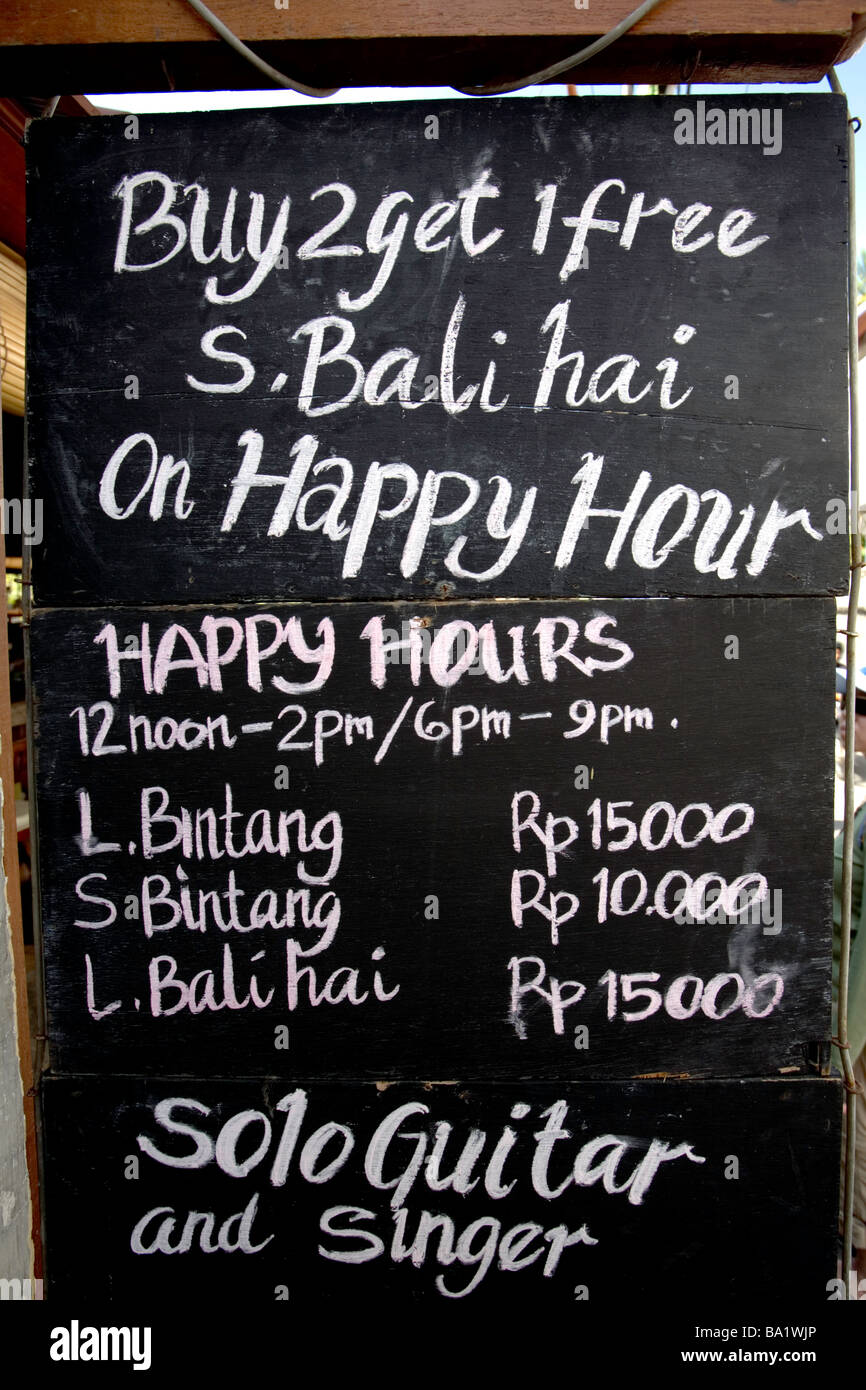 Buy 2 get 1 free
S. Bali hai
On Happy Hour
HAPPY HOURS
12 noon - 2pm / 6pm - 9pm.
L. Bintang Rp 15000
S. Bintang Rp 10.000
L. Bali hai Rp 15000
Solo Guitar
and Singer
alamy
Image ID: BA1WJP
www.alamy.com